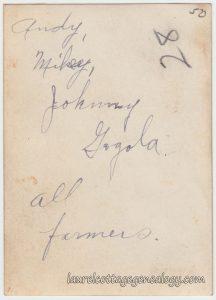 50
Andy,
28
Mikey,
Johnny
Gygola.
all
farmers.
laurelcottagegenealogy.com